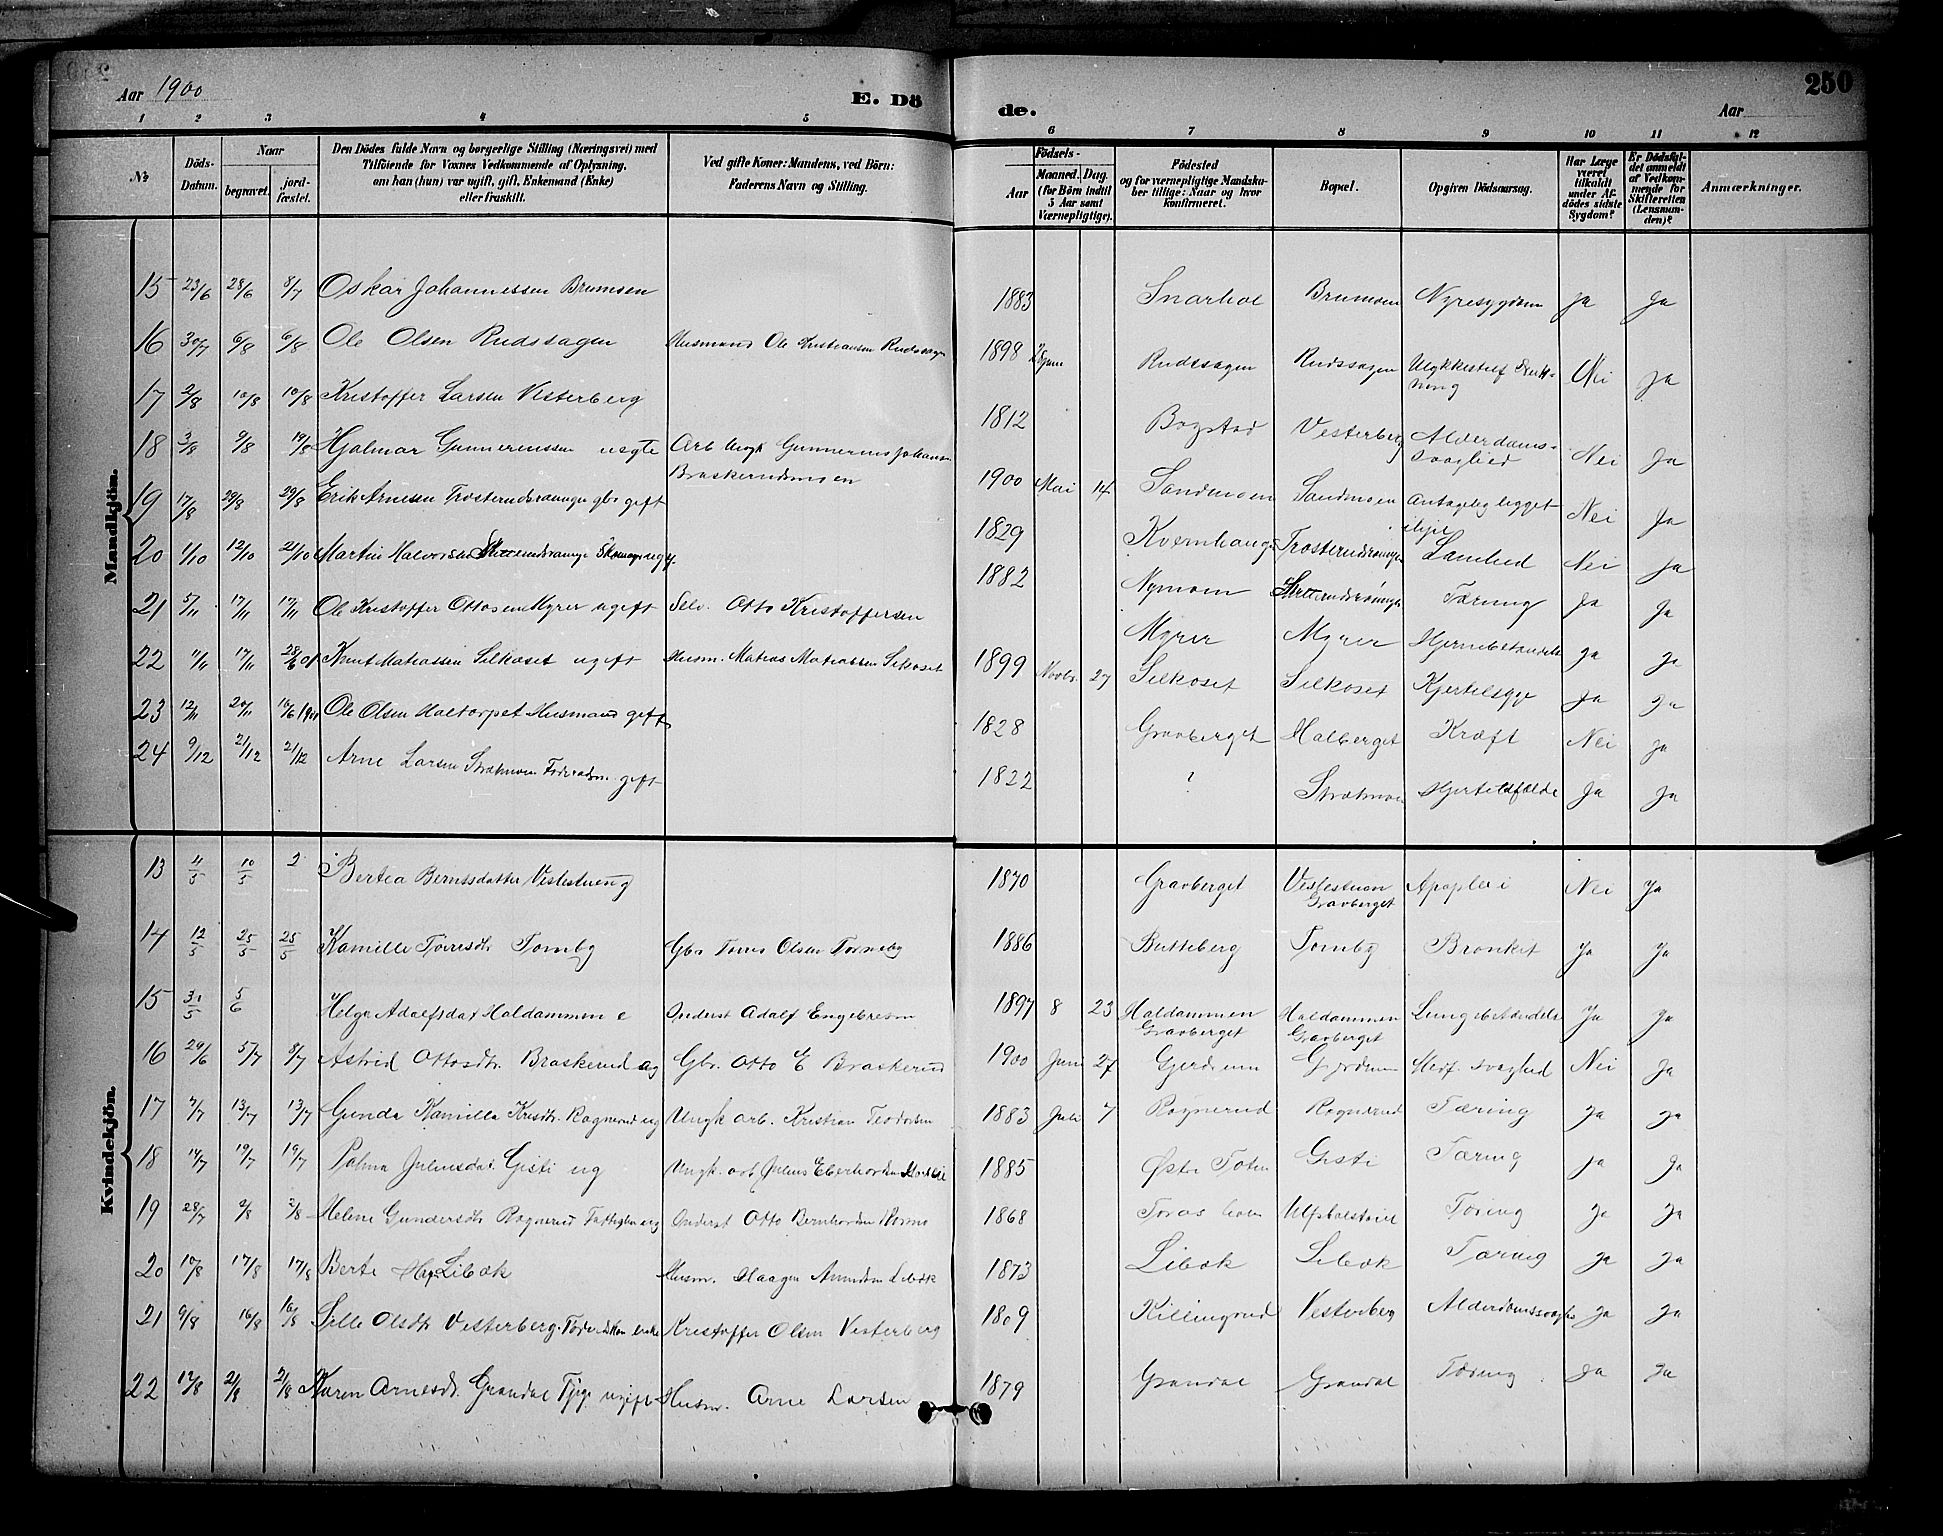 Aar 1900
E. Dö
de.
Aar
250
1 2 3 4 5 6 7 8 9 10 11 12
No
Döds-Datum.
Naar
begravet.
jord-fæstet.
Den Dödes fulde Navn og borgerlige Stilling (Næringsvei) med
Tilföiende for Voxnes Vedkommende af Oplysning,
om han (hun) var ugift, gift, Enkemand (Enke)
eller fraskilt.
Ved gifte Koner: Mandens, ved Börn:
Faderens Navn og Stilling.
Födsels-
Aar
Maaned. Dag.
(for Börn indtil
5 Aar samt
Værnepligtige).
Födested
og for værnepligtige Mandsku-
ber tillige: Naar og hvor
konfirmeret.
Bopæl.
Opgiven Dödsaarsag.
Har Læge
været
tilkaldt
under Af-
dödes sidste
Sygdom?
Er Dödsfal-
det anmeldt
af Vedkom-
mende for
Skifteretten
(Lensman-
den)?
Anmærkninger.
Mandkjön.
15 23/6 28/6 8/7 Oskar Johannessen Brumoen 1883 Snarhol Brumoen Nyresygdom ja Ja
16 30/7 6/8 6/8 Ole Olsen Rudssagen Husmand Ole Kristiansen Rudssagen 1898 Rudssagen Rudssagen Nei Ja
17 2/8 10/8 10/8 Kristoffer Larsen Vesterberg 1812 Bogstad Vesterberg Alderdoms-
svaghed Nei Ja
18 3/8 9/8 19/8 Hjalmar Gunnerenssen uegte Arb Ungk Gunnerius Johansen
Braskerudmoen 1900 Mai 14 Sandmoen Sandmoen Antagelig ligget
ihjel Nei Ja
19 17/8 29/8 29/8 Erik Arnesen Trosterudsvangen gbr gift 1829 Trosterudsvangen Lamhed Nei Ja
20 1/10 12/10 21/10 Martin Halvorsen 1882 Nymoen Tæring Ja Ja
21 5/11 17/11 17/11 Ole Kristoffer Ottosen Myrer ugift Selv. Otto Kristoffersen Myrer Myrer Hjernebetændelse ja Ja
22 17/11 Knut Matiassen Silkoset ugift Husm. Matias Matiassen Silkoset 1899 Novbr. 27 Silkoset Silkoset Kjertelsyge Ja Ja
23 12/11 20/11 Ole Olsen Haltorpet Husmand gift 1828 Gravberget Halberget Kræft Nei Ja
24 9/12 21/12 21/12 Arne Larsen gift 1822 ? Hjertelidfælde Ja Ja
Kvindekjön.
13 4/5 10/5 2 Bertea Berntsdatter Veslestueng 1870 Gravberget Veslestuen
Gravberget Apoplexi Nei Ja
14 12/5 25/5 25/5 Kamille Torresdtr Tomby Gbr Torres Olsen Torneby 1886 Butteberg Tomby Bronkit Ja Ja
15 31/5 5/6 Helga Adalfsdat Haldammen e Inderst Adalf Engebresen 1897 8 23 Haldammen
Gravberget Haldammen
Gravberget Lungebetændelse Ja Ja
16 29/6 5/7 8/7 Astrid Ottosdtr. Braskerud ug Gbr. Otto E Braskerud 1900 Juni 27 Gjerdrum Gjerdrum Medf. svaghed Nei Ja
17 7/7 13/7 13/7 Gunda Kamilla Krisdtr. Rognerud ug Ungk arb. Kristian Teodorsen 1883 Juli 7 Rognerud Rognerud Tæring Ja Ja
18 14/7 19/7 19/7 Palma Juliusdat. Gisti ug Ungk. arb Julius Eberhardsen 1885 Østre Toten Gisti Tæring Ja Ja
19 28/7 2/8 2/8 Helene Gundersdtr Rognerud Inderst Otto Bernhardsen Mosmo 1868 Tæring Ja Ja
20 10/8 17/8 17/8 Berte Hg. Libæk Husm. Haagen Amundsen Libæk 1873 Libæk Libæk Tæring Ja Ja
21 9/8 16/8 16/8 Sille Olsdtr Vesterberg. Föderådskon enke Kristoffer Olsen Vesterberg 1809 Killingrud Vesterberg Alderdomssvaghed Ja Ja
22 12/8 21/8 21/8 Karen Arnesdtr. Grandal Tjpg. ugift Husm. Arne Larsen 1879 Grandal Grandal Tæring Ja Ja